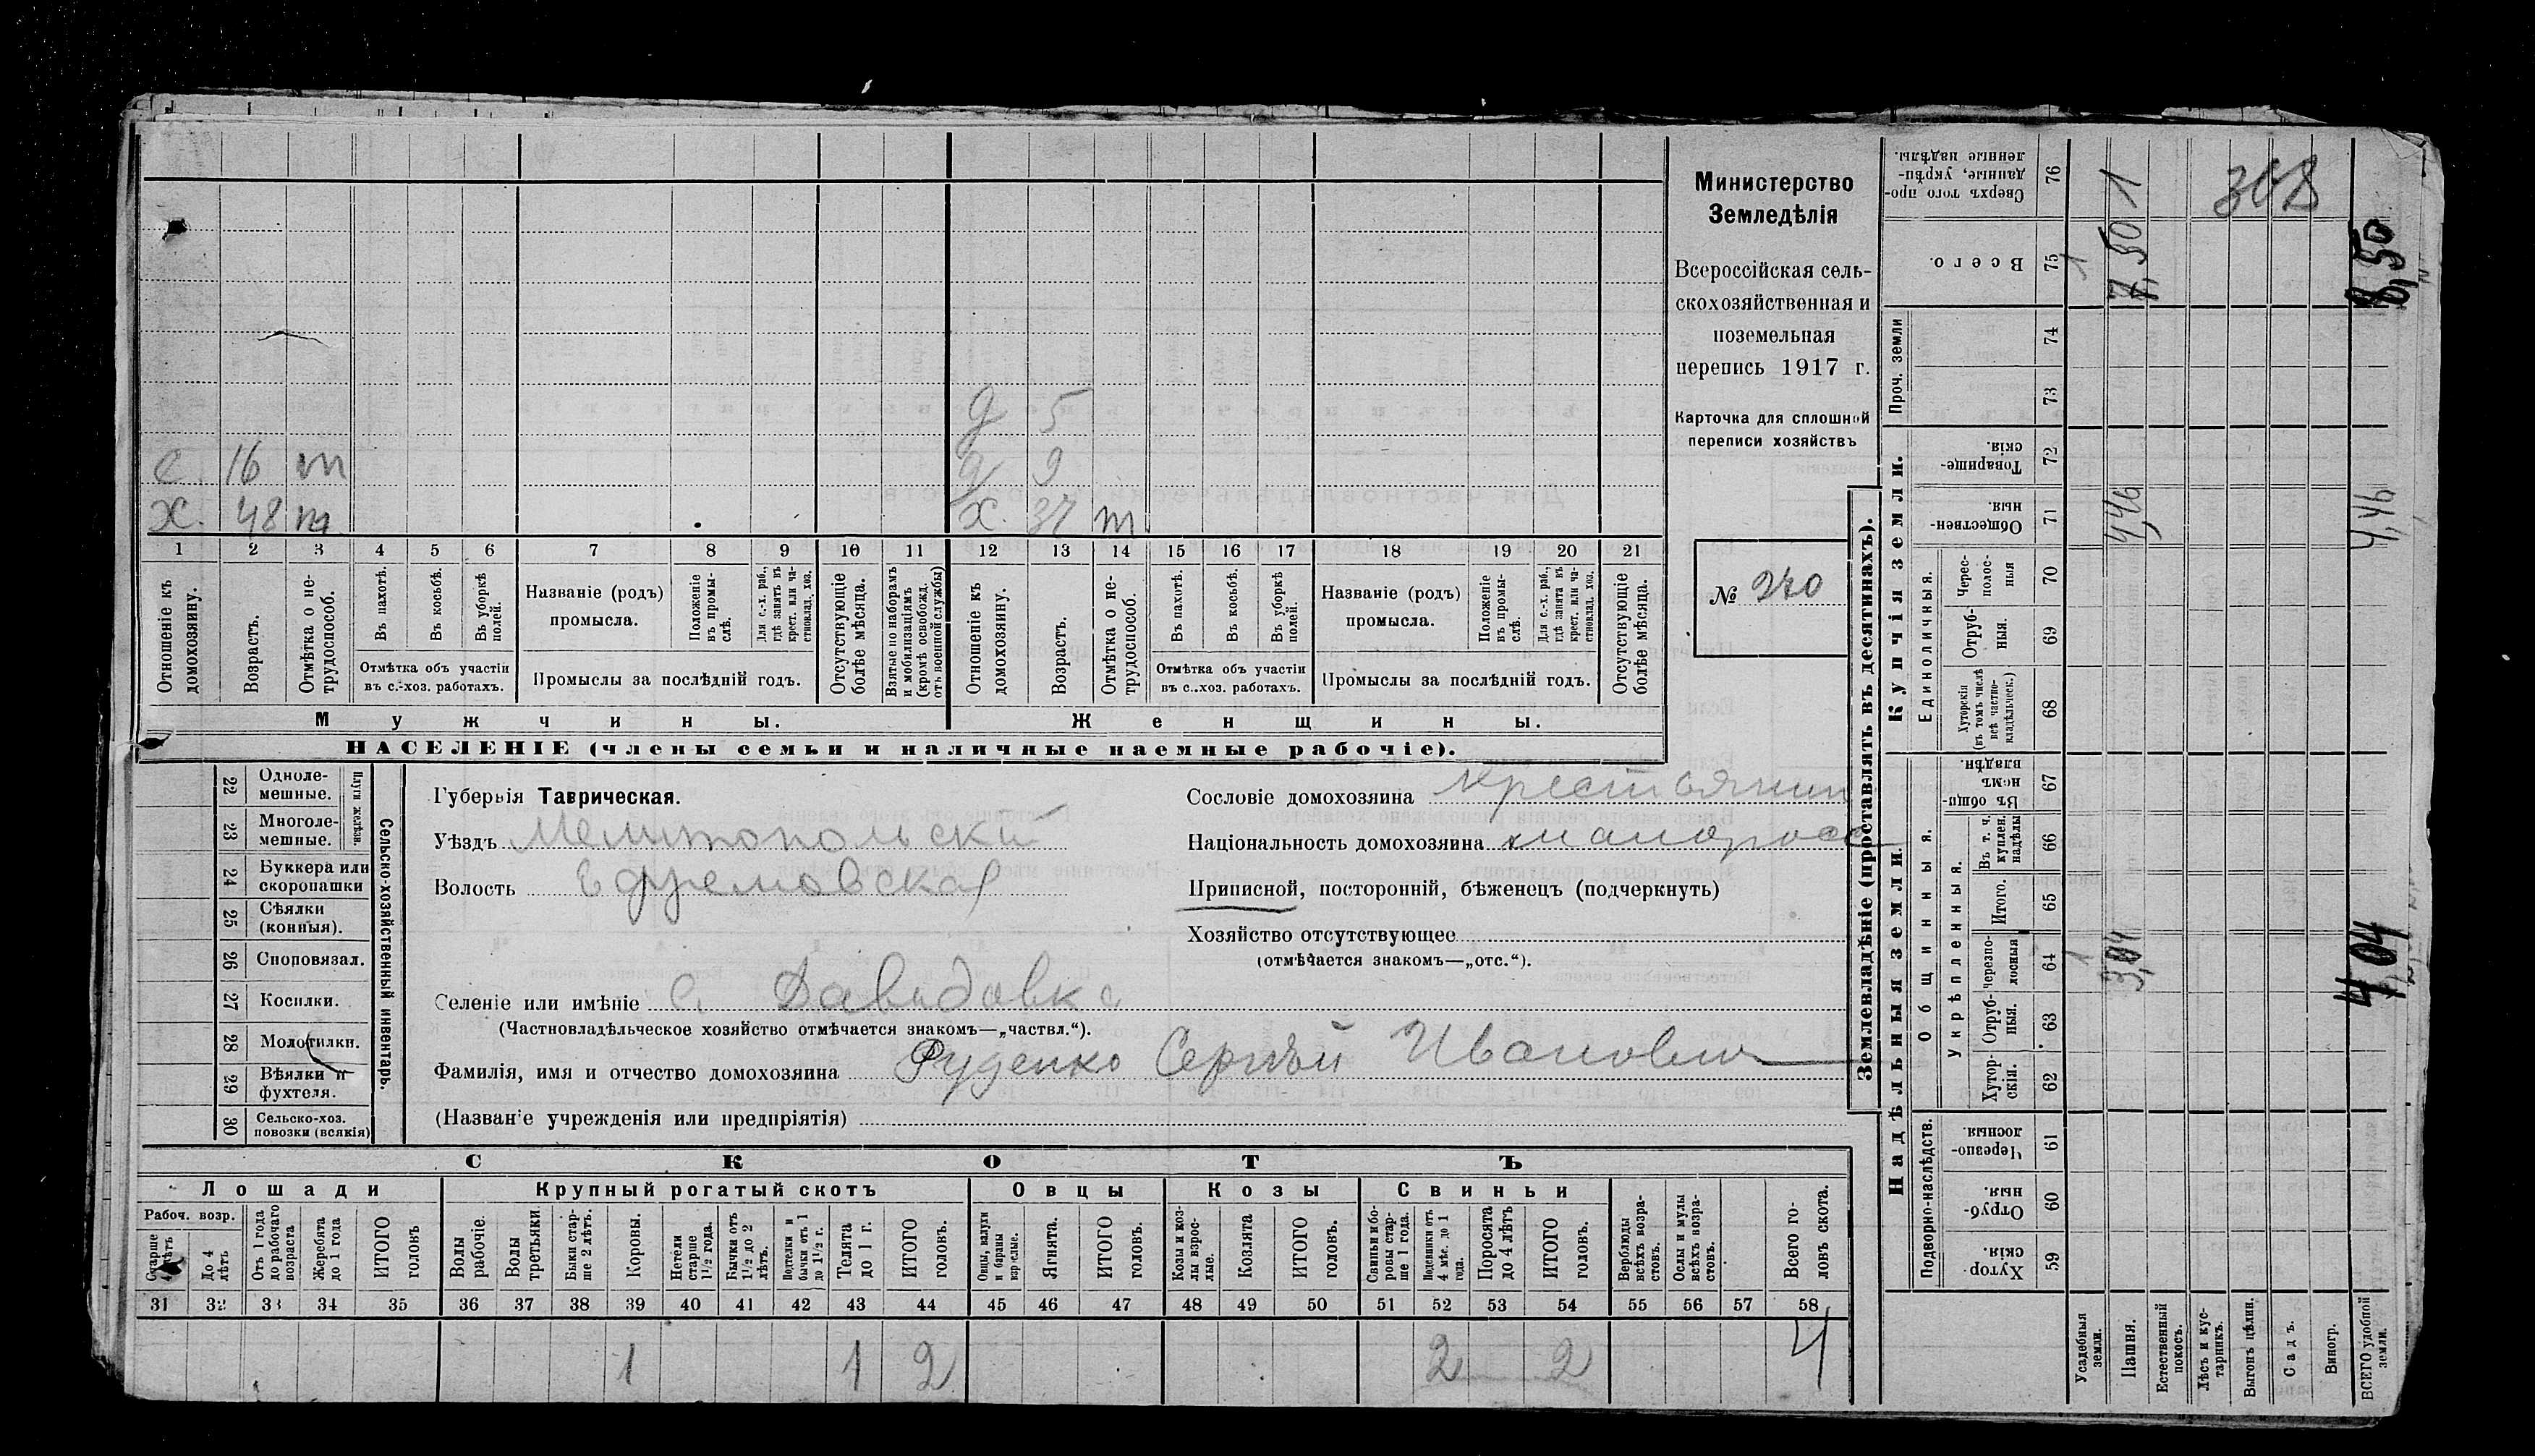 Министерство
Земледѣлія
Всероссійская сель-
скохозяйственная и
поземельная
перепись 1917 г.
Карточка для сплошной
переписи хозяйствъ
№ 270
д 5
с. 16 т
д 9
х. 48 т
х. 37 т
1 2 3 4 5 6 7 8 9 10 11 12 13 14 15 16 17 18 19 20 21
Отношеніе къ домохозяину.
Возрастъ.
Отмѣтка о не-трудоспособ.
Въ пахотѣ.
Въ косьбѣ.
Въ уборкѣ полей.
Отмѣтка объ участіи
въ с.-хоз. работахъ.
Названіе (родъ)
промысла.
Положеніе въ промы-слѣ.
Для с.-х. раб., гдѣ занятъ въ крест. или ча-стновлад. хоз.
Промыслы за послѣдній годъ.
Отсутствующіе болѣе мѣсяца.
Взятые по наборамъ и мобилизаціямъ (кромѣ освобожд. отъ военной службы)
Отношеніе къ домохозяину.
Возрастъ.
Отмѣтка о не-трудоспособ.
Въ пахотѣ.
Въ косьбѣ.
Въ уборкѣ полей.
Отмѣтка объ участіи
въ с.-хоз. работахъ.
Названіе (родъ)
промысла.
Положеніе въ промы-слѣ.
Для с.-х. раб., гдѣ занята въ крест. или ча-стновлад. хоз.
Промыслы за послѣдній годъ.
Отсутствующіе болѣе мѣсяца.
Мужчины.
Женщины.
НАСЕЛЕНІЕ (члены семьи и наличные наемные рабочіе).
22 Одноле-мешные.
23 Многоле-мешные.
Плуги желѣзн.
24 Буккера или скоропашки
25 Сѣялки (конныя).
26 Сноповязал.
27 Косилки.
28 Молотилки.
29 Вѣялки и фухтеля.
30 Сельско-хоз. повозки (всякія)
Сельско-хозяйственный инвентарь.
Губернія Таврическая.
Уѣздъ Мелитопольский
Волость Ефремовская
Сословіе домохозяина крестьянин
Національность домохозяина малоросс
Приписной, посторонній, бѣженецъ (подчеркнуть)
Хозяйство отсутствующее
(отмѣчается знакомъ—„отс.“).
Селеніе или имѣніе с. Давыдовка
(Частновладѣльческое хозяйство отмѣчается знакомъ—„частвл.“).
Фамилія, имя и отчество домохозяина Руденко Сергѣй Иванович
(Названіе учрежденія или предпріятія)
СКОТЪ
Лошади
Крупный рогатый скотъ
Овцы
Козы
Свиньи
Рабоч. возр.
Старше 4 лѣтъ
До 4 лѣтъ
Отъ 1 года до рабочаго возраста
Жеребята до 1 года
ИТОГО головъ
Волы рабочіе.
Волы третьяки
Быки стар-ше 2 лѣтъ.
Коровы.
Нетели старше 1½ года.
Бычки отъ 1½ до 2 лѣтъ.
Подтелки и бычки отъ 1 до 1½ г.
Телята до 1 г.
ИТОГО головъ.
Овцы, валухи и бараны взрослые.
Ягнята.
ИТОГО головъ.
Козы и коз-лы взрос-лые.
Козлята
ИТОГО головъ.
Свиньи и бо-ровы стар-ше 1 года.
Подсвинки отъ 4 мѣс. до 1 года.
Поросята до 4 лѣтъ
ИТОГО головъ.
Верблюды всѣхъ возра-стовъ.
Ослы и мулы всѣхъ возра-стовъ.
Всего го-ловъ скота.
31 32 33 34 35 36 37 38 39 40 41 42 43 44 45 46 47 48 49 50 51 52 53 54 55 56 57 58
1 1 2 2 2 4
Землевладѣніе (проставлять въ десятинахъ).
Надѣльныя земли.
Купчія земли.
Проч. земли
Подворно-наслѣдств.
Общинныя.
Укрѣпленныя.
Единоличныя.
Сверхъ того про-данные, укрѣп-ленные надѣлы. 76 1
Всего. 75 1 7,50 8,50
74
73
Товарище-скія. 72
Обществен-ныя. 71 4,46 4,46
Черес-полос-ныя 70
Отруб-ныя. 69
Хуторскія (въ томъ числѣ всѣ частно-владѣльческ.) 68
Въ общи-номъ владѣн. 67
Въ т. ч. куплен. надѣлы 66
Итого. 65
Черезпо-лосныя 64 1 3,04 4,04
Отруб-ныя. 63
Хутор-скія. 62
Черезпо-лосныя. 61
Отруб-ныя. 60
Хутор-скія. 59
Усадебныя земли.
Пашня.
Естественный покосъ.
Лѣсъ и кус-тарникъ.
Выгонъ цѣлин.
Садъ.
Виногр.
ВСЕГО удобной земли.